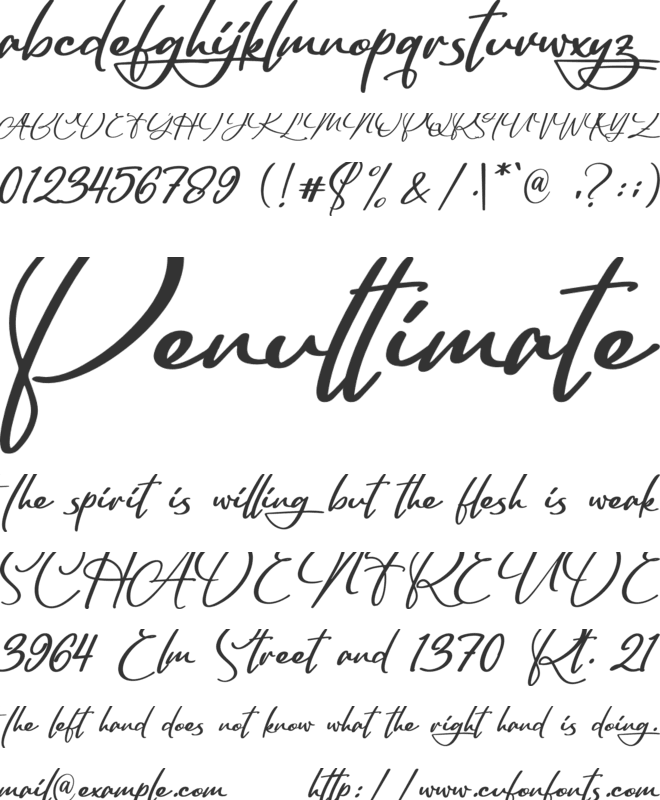 abcdefghijklmnopqrstuvwxyz
ABCDEFGHIJKLMNOPQRSTUVWXYZ
0123456789 (!#$%&/.|*`@ .?:;)
Penultimate
the spirit is willing but the flesh is weak
SCHADENFREUDE
3964 Elm Street and 1370 Rt. 21
The left hand does not know what the right hand is doing.
mail@example.com http://www.cufonfonts.com